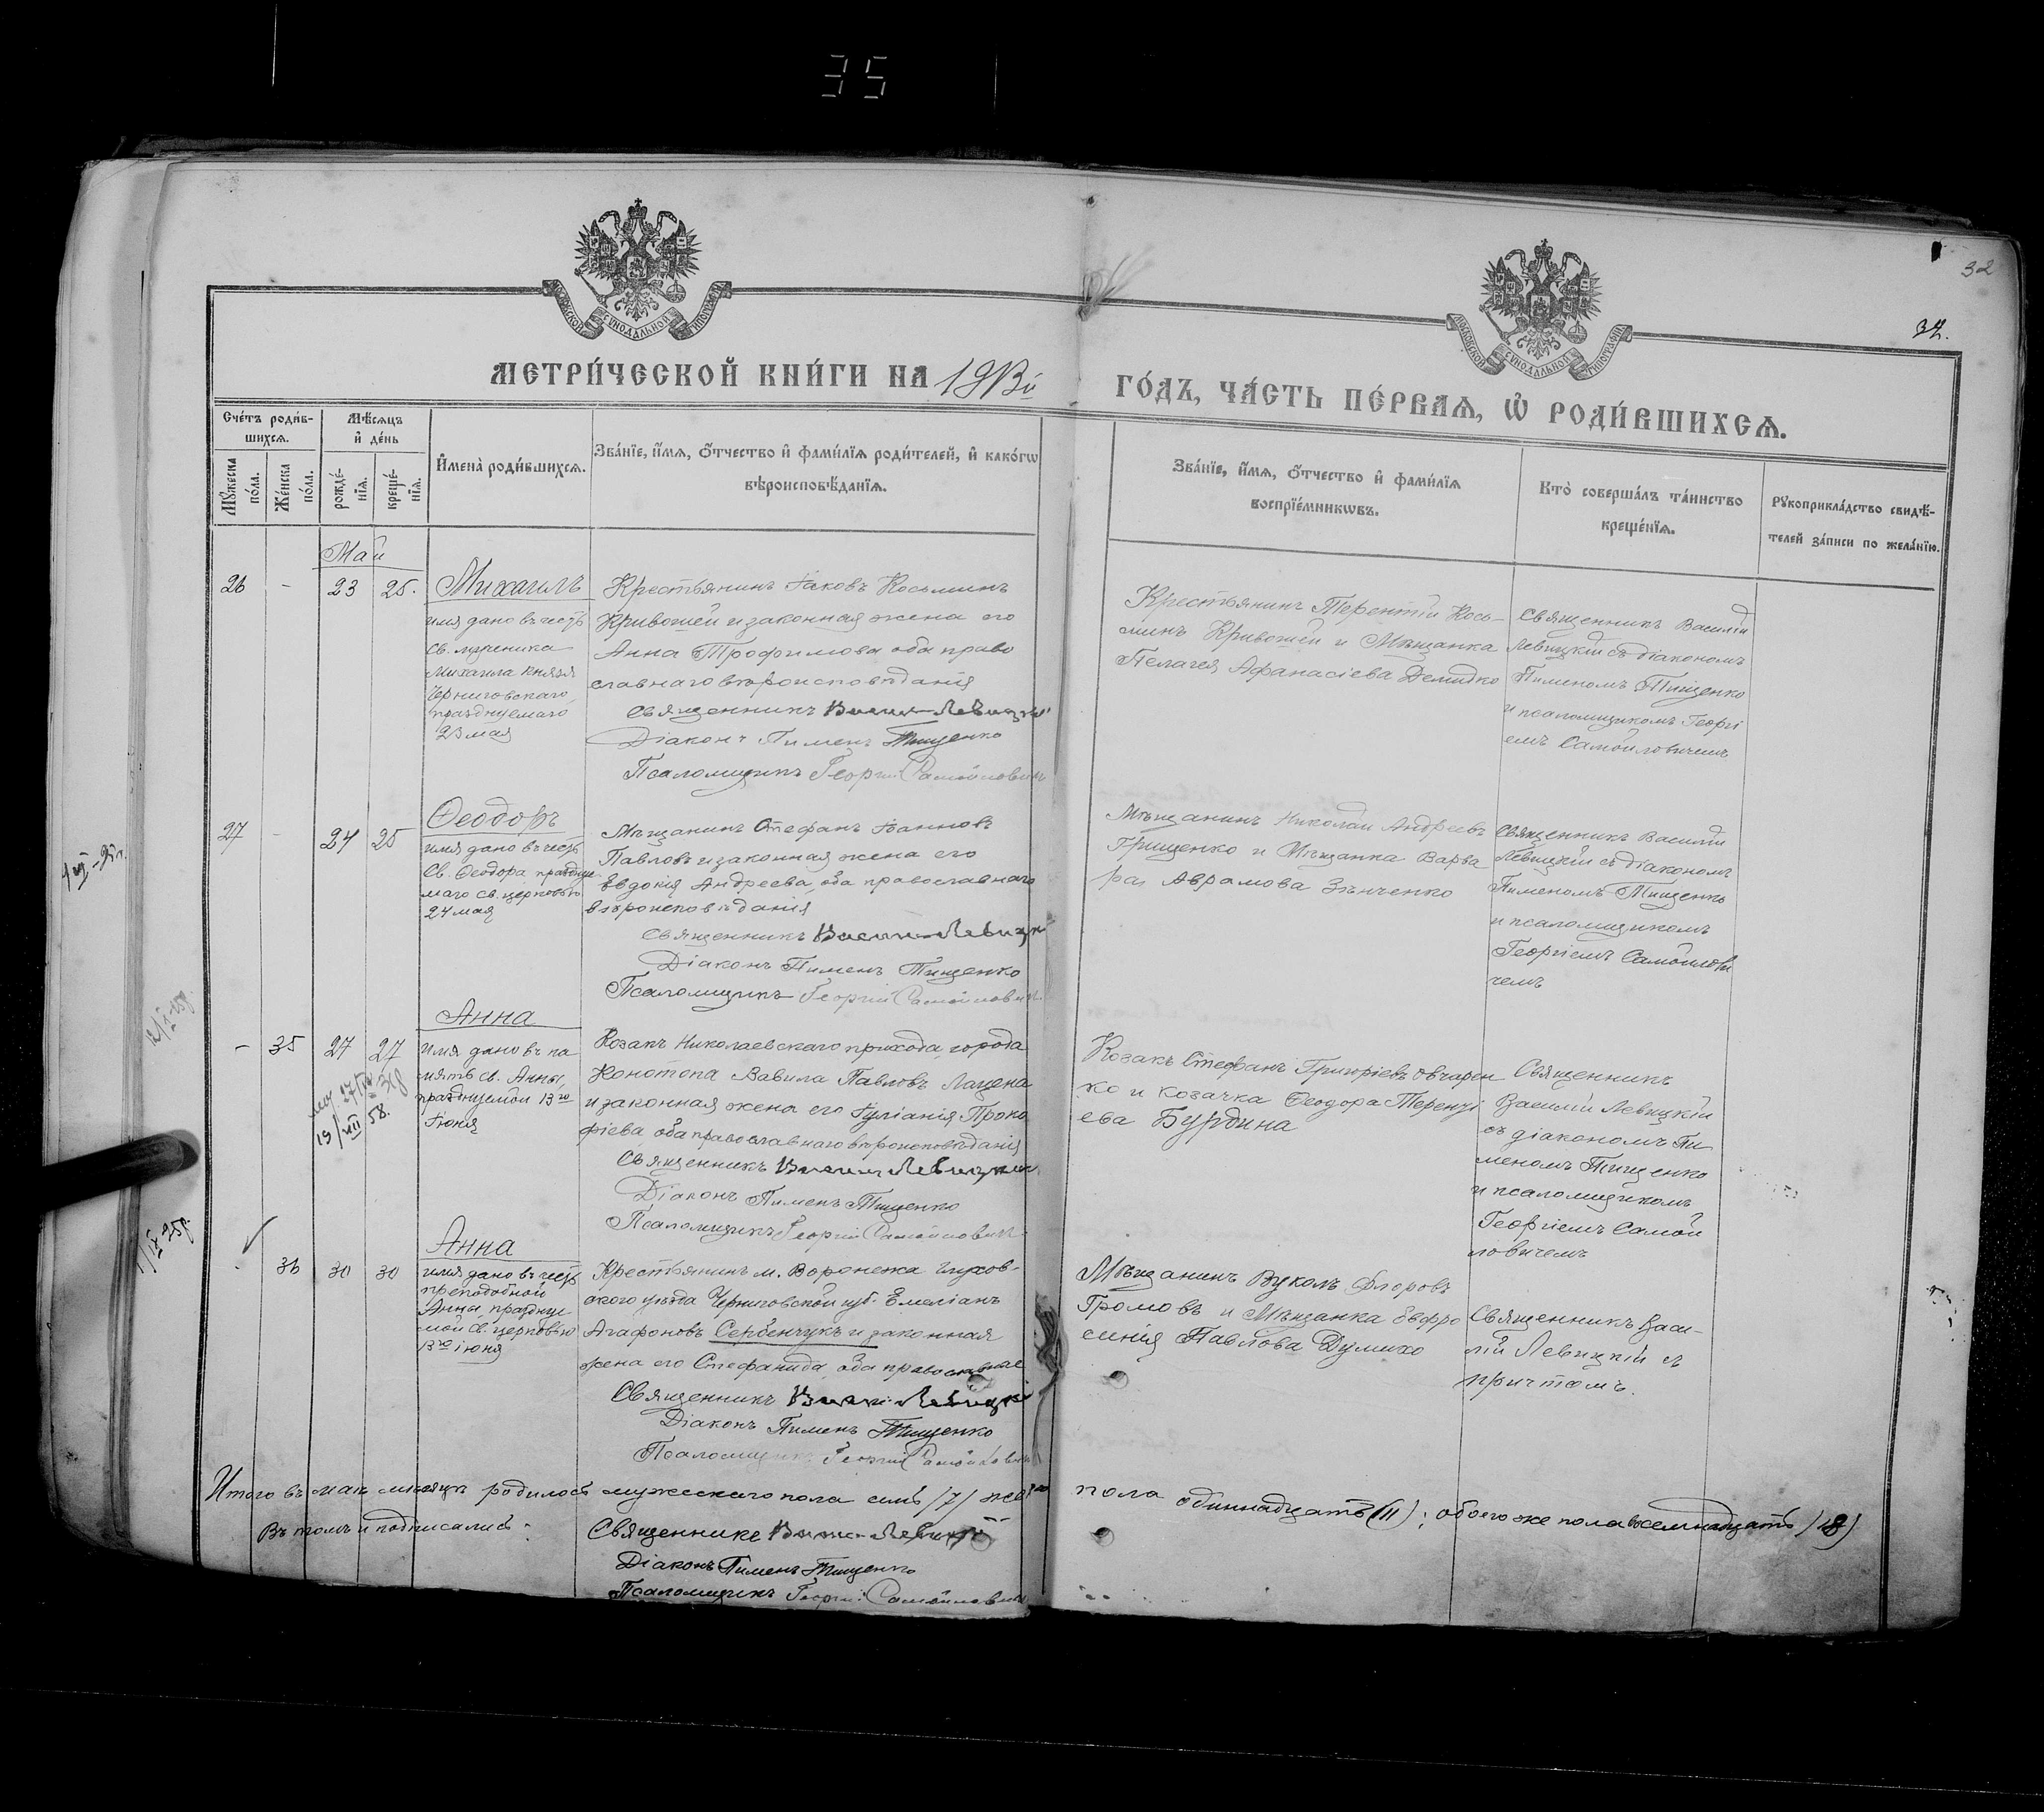 35
32
32.
МОСКОВСКОЙ СѴНОДАЛЬНОЙ ТИПОГРАФІИ
МОСКОВСКОЙ СѴНОДАЛЬНОЙ ТИПОГРАФІИ
МЕТРИ́ЧЕСКОЙ КНИ́ГИ НА
ГО́ДЪ, ЧА́СТЬ ПЕ́РВАѦ, Ѡ҆ РОДИ́ВШИХСѦ.
Сче́тъ роди́в-
шихсѧ.
Мꙋ́жеска по́ла.
Же́нска по́ла.
Мѣ́сѧцъ
и҆ де́нь
рожде́-
нїѧ.
креще́-
нїѧ.
И҆мена̀ роди́вшихсѧ.
Зва́нїе, и҆́мѧ, ѻ҆́тчество и҆ фами́лїѧ роди́телей, и҆ како́гѡ
вѣроисповѣ́данїѧ.
Зва́нїе, и҆́мѧ, ѻ҆́тчество и҆ фами́лїѧ
воспрїе́мникѡвъ.
Кто̀ соверша́лъ та́инство
креще́нїѧ.
Рꙋкоприкла́дство свидѣ́-
телей за́писи по жела́нїю.
Май
26 - 23 25.
Михаилъ
имя дано въ честь
св. мученика
Михаила Князя
Черниговскаго,
празднуемаго
23 мая
Крестьянинъ Іаковъ Косьминъ
Кривошей и законная жена его
Анна Трофимова оба право
славнаго вѣроисповѣданія
Священникъ Василій Левицкій
Діаконъ Пименъ Тищенко
Псаломщикъ Георгій Самойловичъ
Крестьянинъ Терентій Кось-
минъ Кривошей и Мѣщанка
Пелагея Афанасіева Демидко
Священникъ Василій
Левицкій съ діакономъ
Пименомъ Тищенко
и псаломщикомъ Георгі
емъ Самойловичемъ
27 - 24 25
Ѳеодоръ
имя дано въ честь
Св. Ѳеодора празднуе
маго св. церковью
24 мая
Мѣщанинъ Стефанъ Іоанновъ
Павловъ и законная жена его
Евдокія Андреева, оба православнаго
вѣроисповѣданія
Священникъ Василій Левицкій
Діаконъ Пименъ Тищенко
Псаломщикъ Георгій Самойловичъ
Мѣщанинъ Николай Андреевъ
Грищенко и Мѣщанка Варва
ра Аврамова Зѣнченко
Священникъ Василій
Левицкій съ діакономъ
Пименомъ Тищенко
и псаломщикомъ
Георгіемъ Самойлови
чемъ
- 35 27 27
Анна
имя дано въ па
мять св. Анны,
празднуемой 13го
Іюня
19/VII 58.
Козакъ Николаевскаго прихода города
Конотопа Вавила Павловъ Лацена
и законная жена его Іуліанія Проко
фіева, оба православнаго вѣроисповѣданія
Священникъ Василій Левицкій
Діаконъ Пименъ Тищенко
Псаломщикъ Георгій Самойловичъ
Козакъ Стефанъ Григоріевъ Овчарен
ко и козачка Ѳеодора Теренті
ева Бурдина
Священникъ
Василій Левицкій
съ діакономъ Пи
меномъ Тищенко
и псаломщикомъ
Георгіемъ Самой
ловичемъ
36 30 30
Анна
имя дано въ честь
преподобной
Анны, праздну
мой св. церковью
13го іюня
Крестьянинъ м. Воронежа Глухов-
скаго уѣзда Черниговской губ. Емеліанъ
Агафоновъ Сербенчукъ и законная
жена его Стефанида, оба православные
Священникъ Василій Левицкій
Діаконъ Пименъ Тищенко
Псаломщикъ Георгій Самойловичъ
Мѣщанинъ Вуколъ Флоровъ
Громовъ и Мѣщанка Евфро
синія Павлова Думихо
Священникъ Васи-
лій Левицкій съ
причтомъ.
Итого въ маѣ мѣсяцѣ родилось мужескаго пола семь (7) женскаго пола одиннадцать (11); обоего же пола восемнадцать (18)
Въ томъ и подписались:
Священникъ Василій Левицкій
Діаконъ Пименъ Тищенко
Псаломщикъ Георгій Самойловичъ